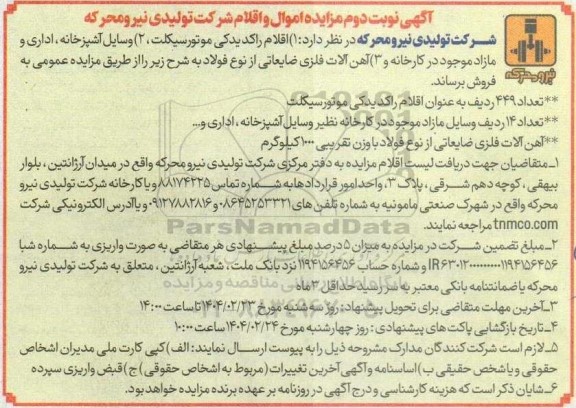 آگهی نوبت دوم مزایده اموال و اقلام شرکت تولیدی نیرو محرکه
شرکت تولیدی نیرو محرکه در نظر دارد: ۱) اقلام راکد یدکی موتورسیکلت ، ۲) وسایل آشپزخانه ، اداری و
مازاد موجود در کارخانه و ۳) آهن آلات فلزی ضایعاتی از نوع فولاد به شرح زیر را از طریق مزایده عمومی به
فروش برساند.
نیرو محرکه
**تعداد ۴۴۹ ردیف به عنوان اقلام راکد یدکی موتورسیکلت
**تعداد ۱۴ ردیف وسایل مازاد موجود در کارخانه نظیر وسایل آشپزخانه ، اداری و...
**آهن آلات فلزی ضایعاتی از نوع فولاد با وزن تقریبی ۱۰۰۰ کیلوگرم
۱_ متقاضیان جهت دریافت لیست اقلام مزایده به دفتر مرکزی شرکت تولیدی نیرو محرکه واقع در میدان آرژانتین ، بلوار
بیهقی ، کوچه دهم شرقی ، پلاک ۳ ، واحد امور قراردادها به شماره تماس ۸۸۱۷۴۲۲۵ و یا کارخانه شرکت تولیدی نیرو
محرکه واقع در شهرک صنعتی مامونیه به شماره تلفن های ۰۸۶۴۵۲۵۳۳۲۱ و ۰۹۱۲۷۸۸۲۸۱۶ و یا آدرس الکترونیکی شرکت
tnmco.com مراجعه نمایند.
ParsNamadData
۲_ مبلغ تضمین شرکت در مزایده به میزان ۵ درصد مبلغ پیشنهادی هر متقاضی به صورت واریزی به شماره شبا
و شماره حساب ۱۱۹۴۱۵۶۴۵۶ نزد بانک ملت ، شعبه آرژانتین ، متعلق به شرکت تولیدی نیرو
محرکه یا ضمانتنامه بانکی معتبر به سررسید حداقل ۳ ماه
۳_ آخرین مهلت متقاضی برای تحویل پیشنهاد: روز سه شنبه مورخ ۱۴۰۴/۰۲/۲۳ تا ساعت ۱۴:۰۰
۴_ تاریخ بازگشایی پاکت های پیشنهادی : روز چهارشنبه مورخ ۱۴۰۴/۰۲/۲۴ ساعت ۱۰:۰۰
۵_ لازم است شرکت کنندگان مدارک مشروحه ذیل را به پیوست ارسال نمایند: الف) کپی کارت ملی مدیران اشخاص
حقوقی و یا شخص حقیقی ب) اساسنامه و آگهی آخرین تغییرات (مربوط به اشخاص حقوقی) ج) قبض واریزی سپرده
۶_ شایان ذکر است که هزینه کارشناسی و درج آگهی در روزنامه بر عهده برنده مزایده خواهد بود.